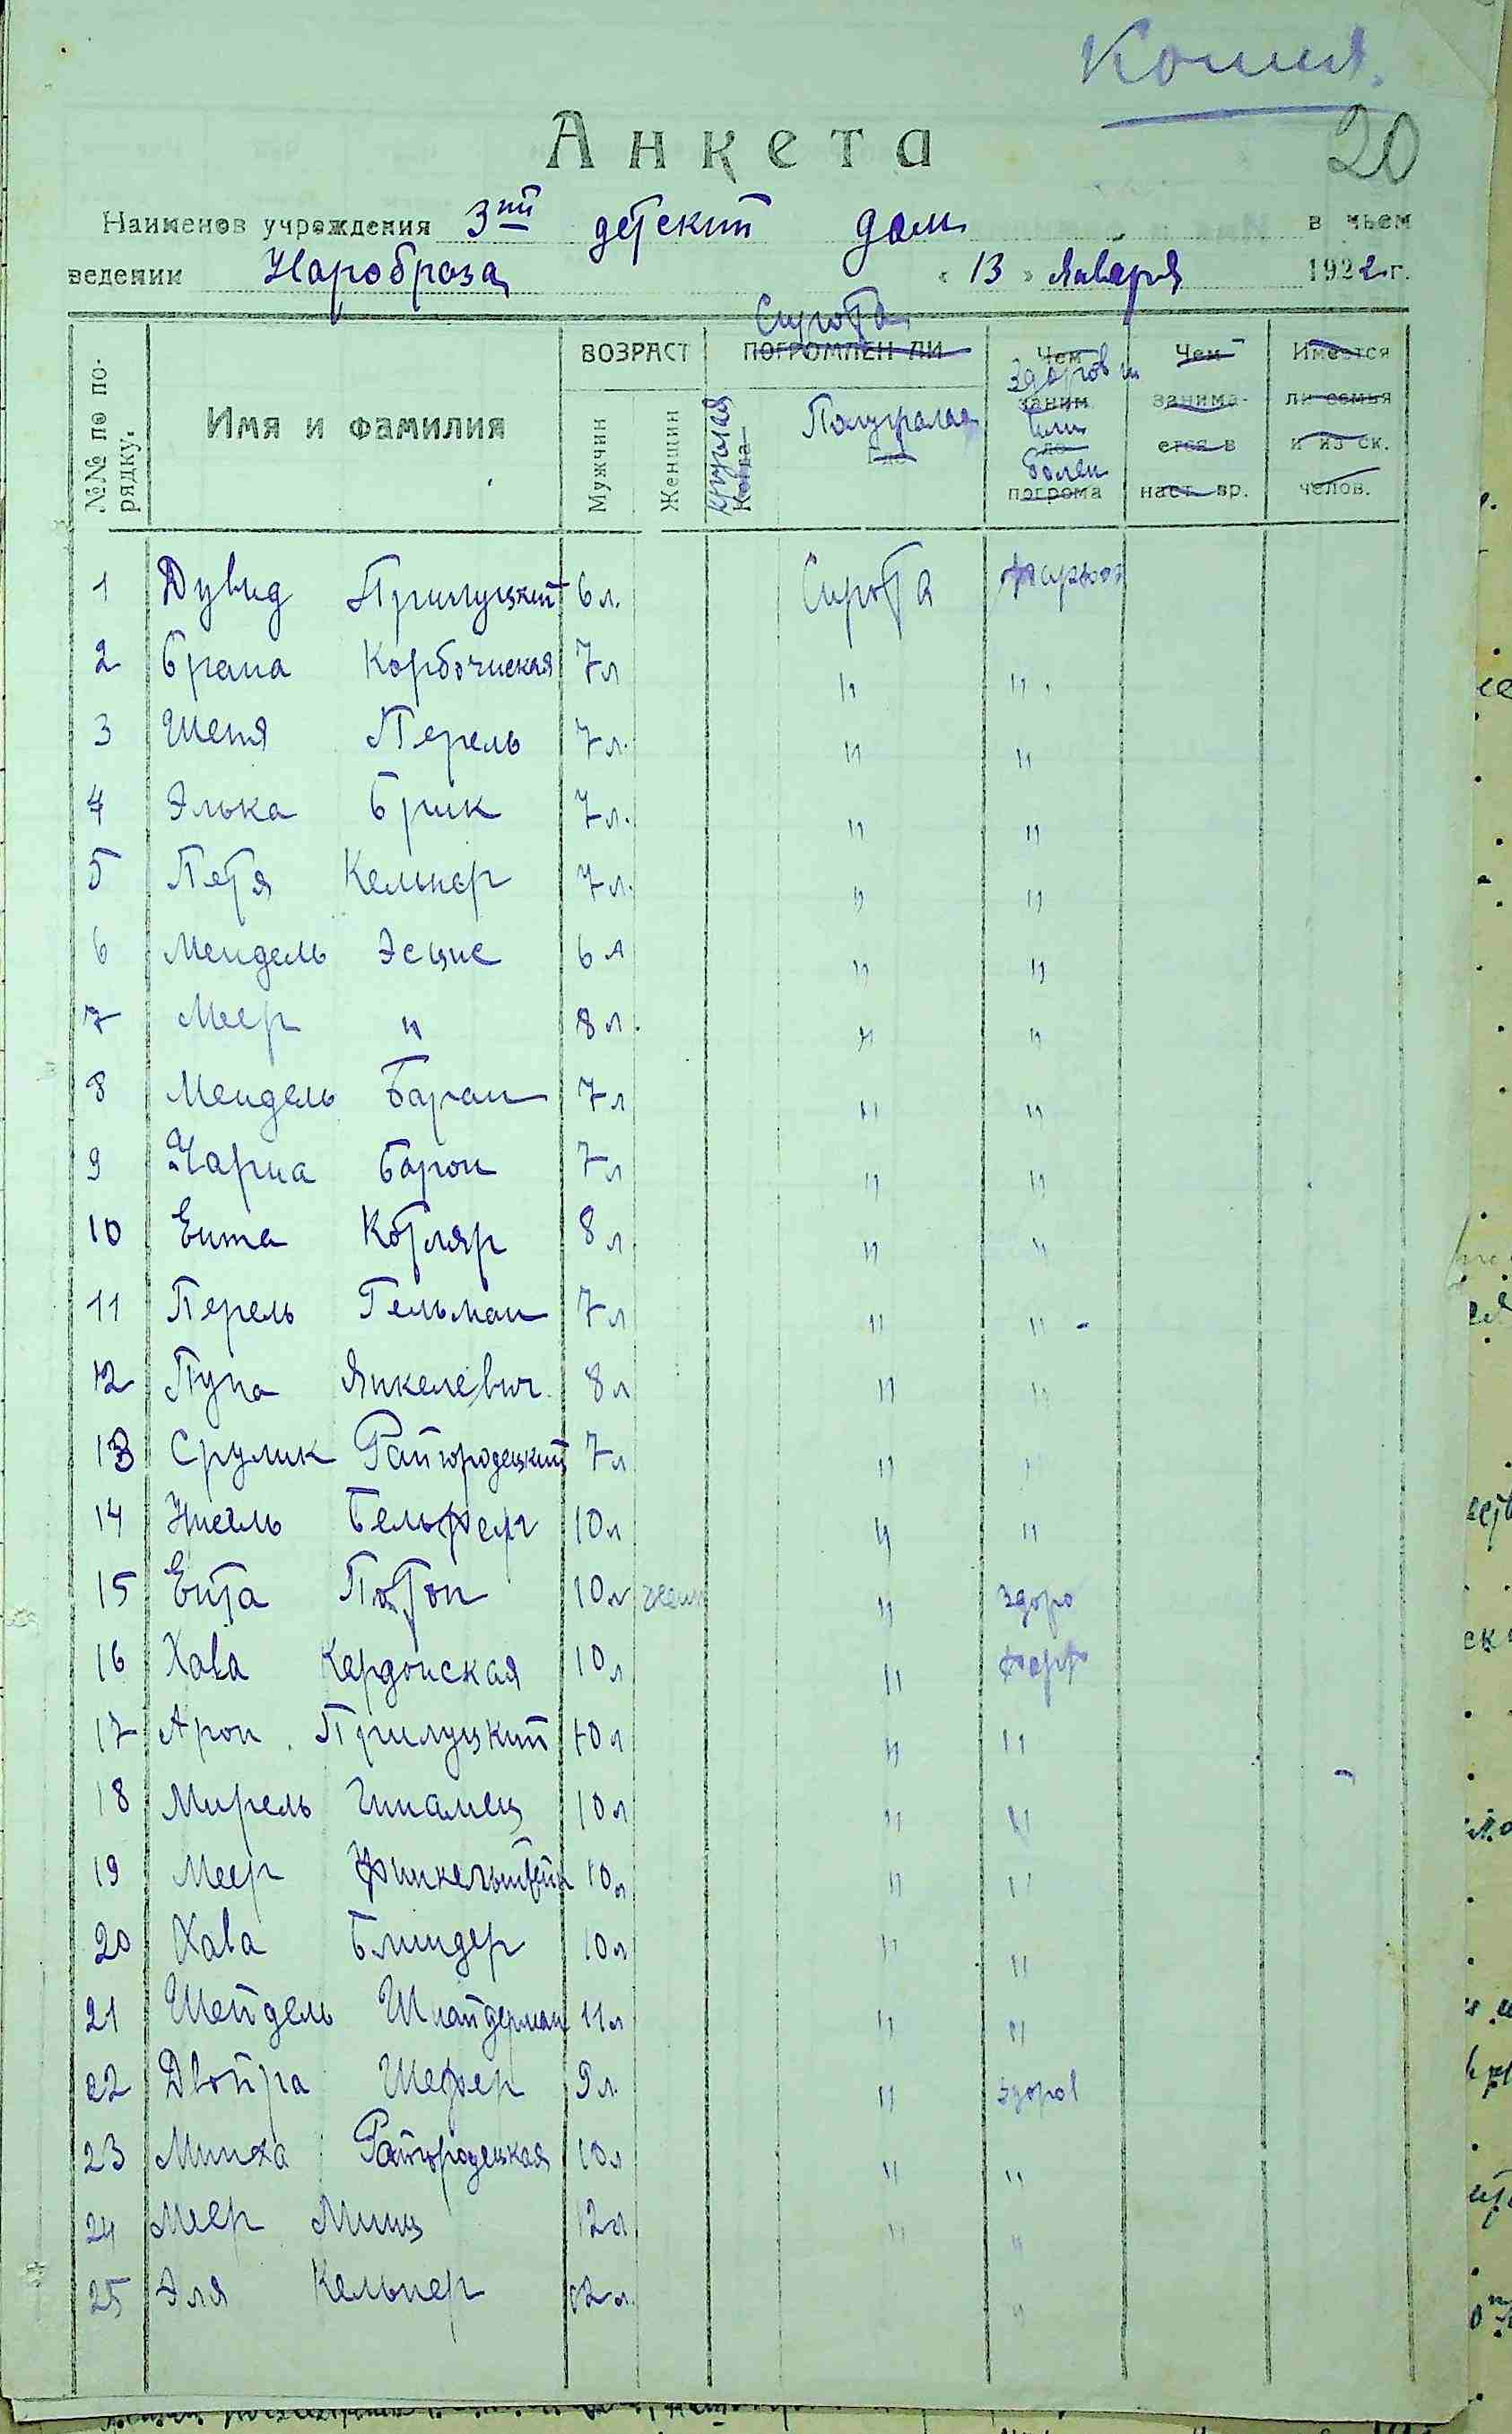 Копия.
20
Анкета
Наименов учреждения 3ий детский дом в чьем
ведении Наробраза « 13 » Января 1922 г.
№№ по по-
рядку.
Имя и фамилия
ВОЗРАСТ
Мужчин
Женщин
Сирота
ПОГРОМЛЕН ЛИ
круглая
Когда
Полукруглая
Где
Чем
здоров или
заним
до
болен
погрома
Чем
занима-
ется в
наст. вр.
Имеется
ли семья
и из ск.
челов.
1 Дувид Прилуцкий 6 л. Сирота
2 Корбочиская 7 л " "
3 Шеня Перель 7 л. " "
4 Элька Брик 7 л. " "
5 Петя Кельнер 7 л. " "
6 Мендель Эсцис 6 л " "
7 Меер " 8 л. " "
8 Мендель Баран 7 л " "
9 Чарна Барон 7 л " "
10 Ента Котляр 8 л " "
11 Перель Гельман 7 л " "
12 Пупа Янкелевич. 8 л " "
13 Срулик Райгородецкий 7 л " "
14 Бельферг 10 л " "
15 Ента 10 л жен " здоро
16 Хава Кердонская 10 л "
17 Арон Прилуцкий 10 л " "
18 Мирель 10 л " "
19 Меер Финкельштейн 10 л " "
20 Хава Блиндер 10 л " "
21 Шейдель Шнайдерман 11 л " "
22 Двойра Шефер 9 л. " здоров
23 Минха Райгородецкая 10 л " "
24 Меер Минц 12 л " "
25 Эля Кельнер 12 л. "